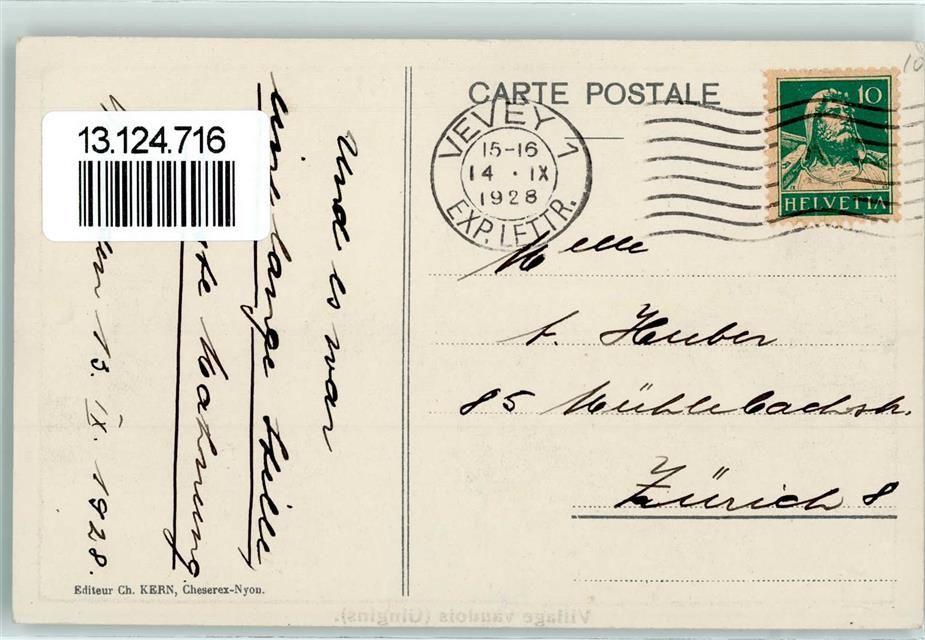 13.124.716
CARTE POSTALE
VEVEY 1
15-16
14 · IX
1928
EXP. LETTR.
10
HELVETIA
Und es war
eine lange Stille
te Mahnung
13. IX. 1928.
Melle
t. Huber
85 Mühlebachstr.
Zürich 8
Editeur Ch. KERN, Cheserex-Nyon.
Village vaudois (Gingins).